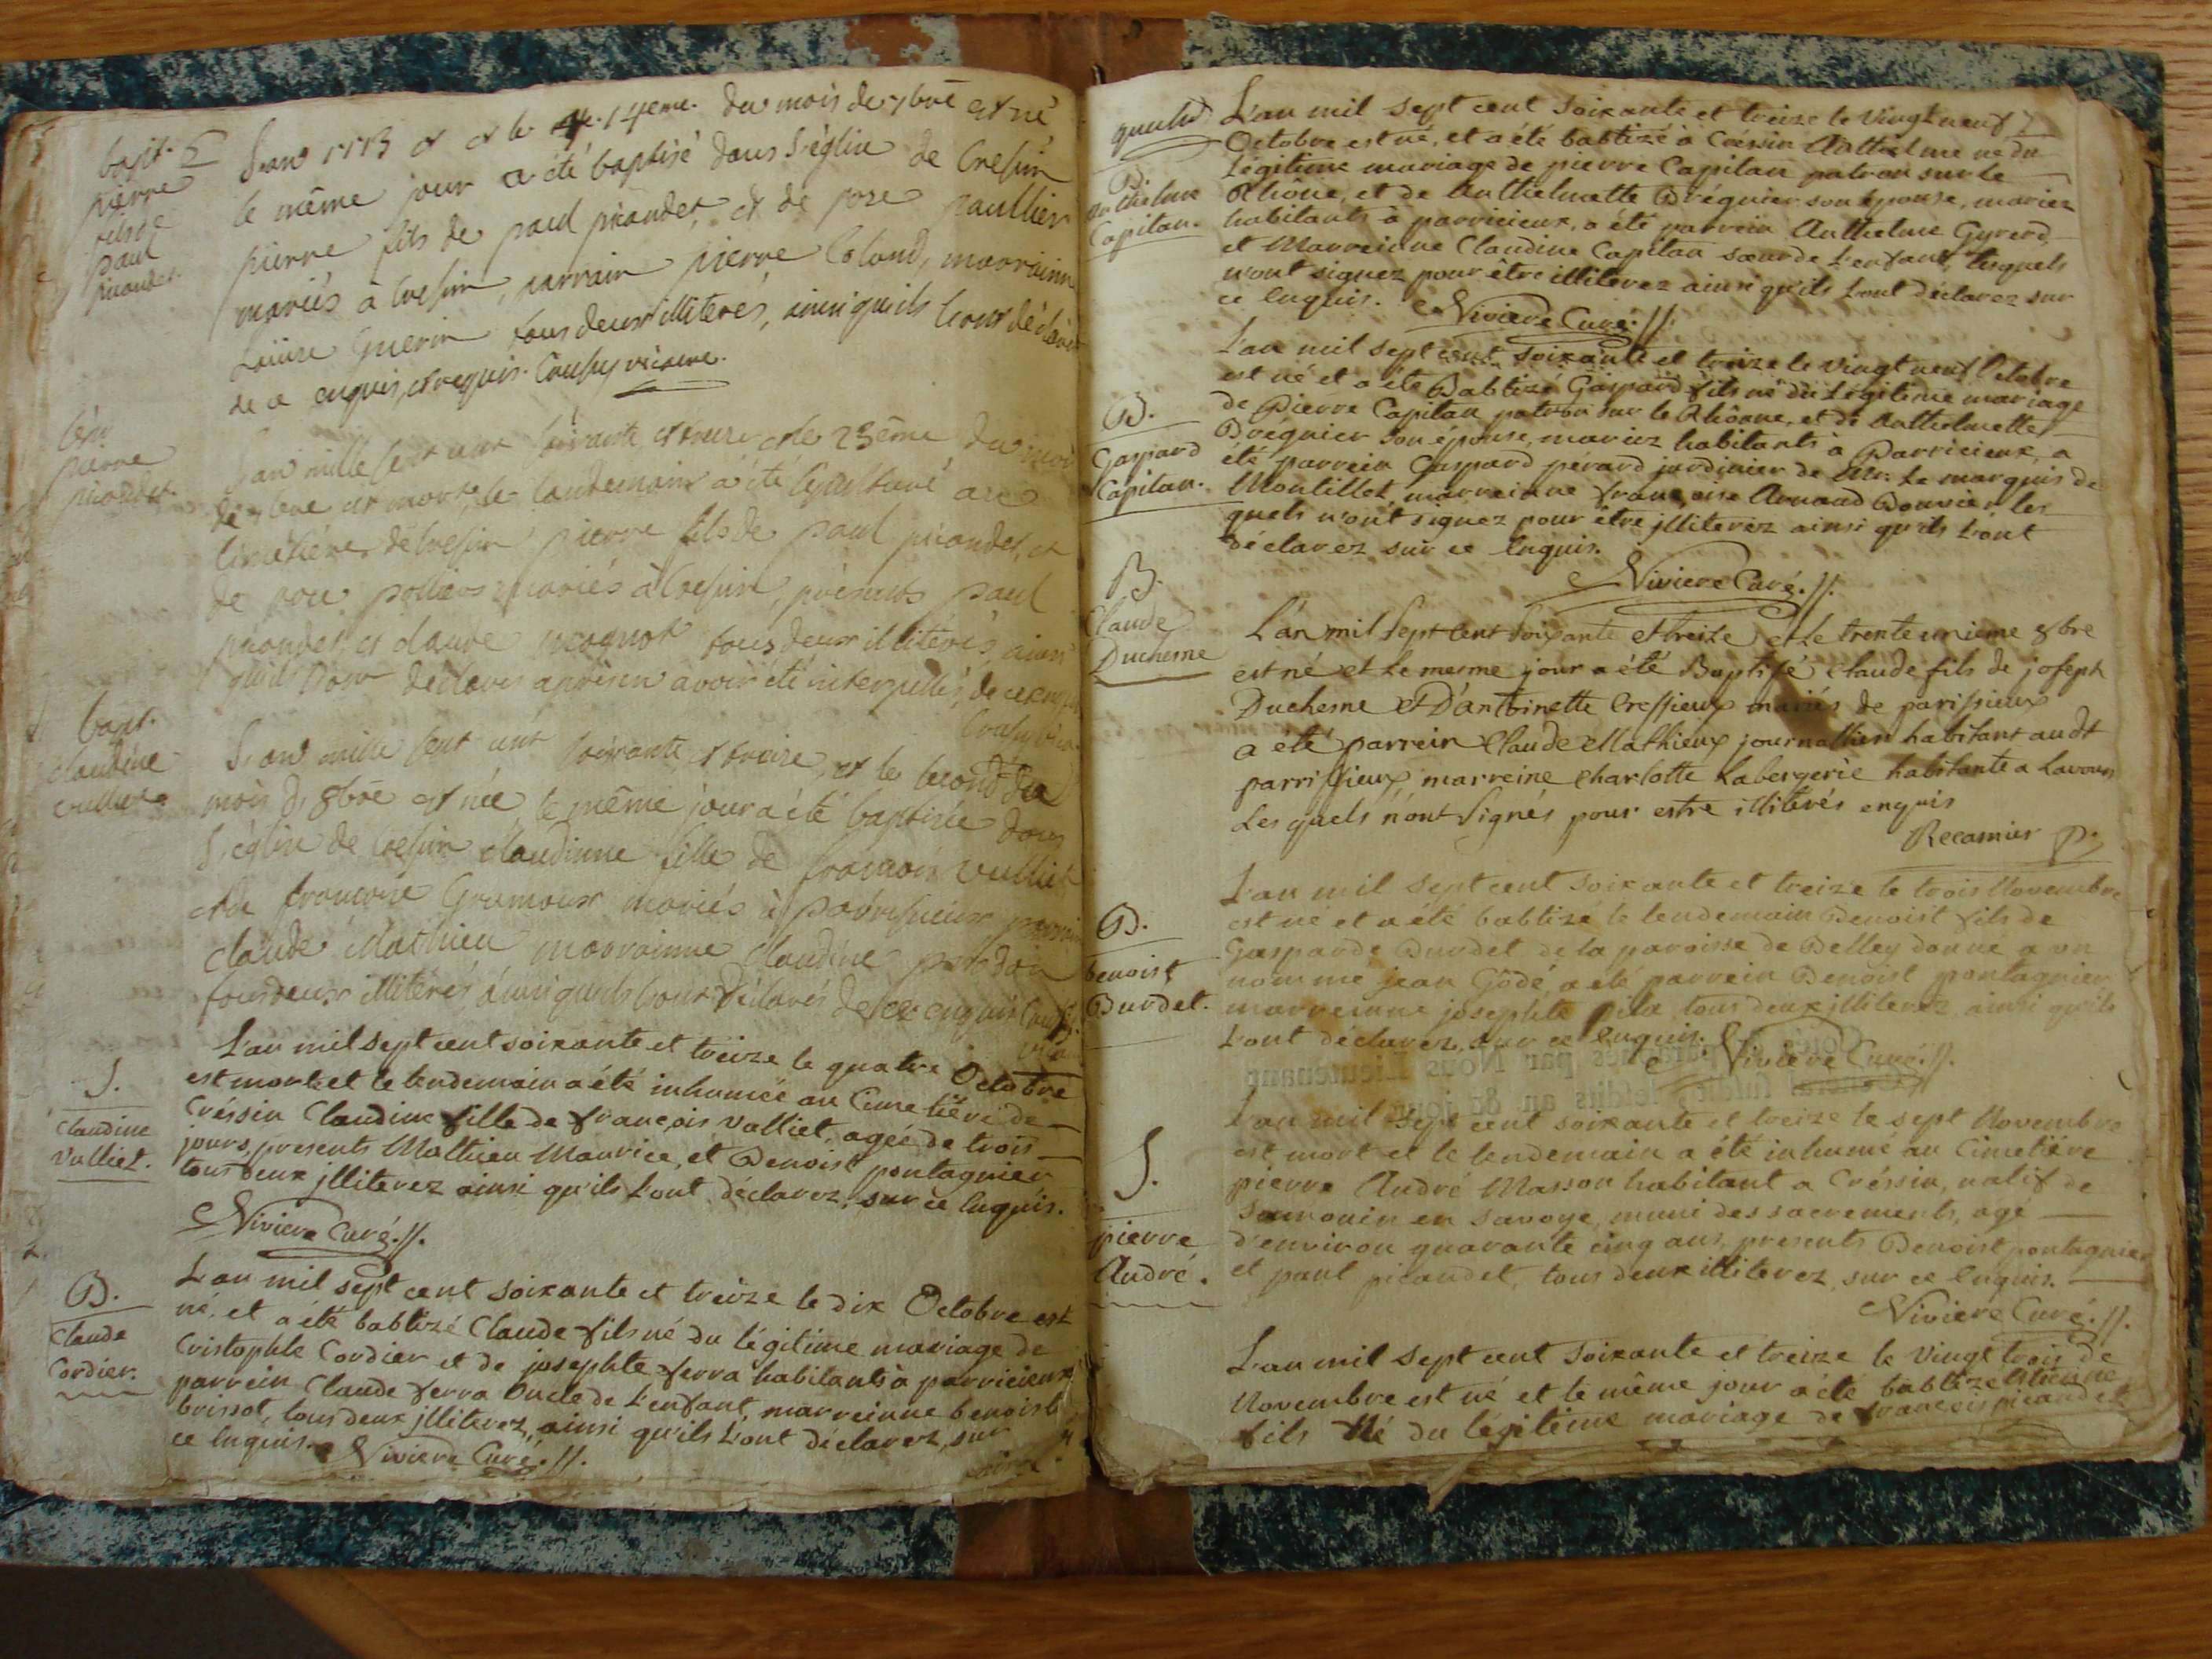 bapt.
pierre
fils de
paul
picandet
L'an 1773 et le 14eme. du mois de 7bre est né
le même jour a été baptisé dans l'église de Cresin
pierre fils de paul picandet, et de
mariés à Cresin, parrain pierre marrainne
Guerin tous deux illiterés, ainsi qu'ils l'ont déclaré
de ce enquis, et requis. vicaire.
pierre
picandet
L'an mille sept cent soixante et treize et le 23ême du mois
de est mort, le landemain a été
Cimetière de Cresin pierre fils de paul picandet, et
de mariés à Cresin, présents paul
picandet, et claude tous deux illiterés, ainsi
qu'ils l'ont déclarés après en avoir été interpellés, de ce
bapt.
claudine
L'an mille sept cent soixante et treize, et le second du
mois d'8bre est née, le même jour a été baptisée dans
l'église de Cresin claudinne fille de françois
et de françoise mariés à parrain
claude Mathieu marrainne claudine
tous deux illiterés, ainsi qu'ils l'ont déclarés de ce enquis
S.
Claudine
Valliet.
L'an mil sept cent soixante et treize le quatre Octobre
est morte et le lendemain a été inhumée au Cimetiére de
Créssin Claudine fille de françois Valliet, agée de trois
jours, presents Mathieu Maurice, et Benoist pontagnier
tous deux jlliterez ainsi qu'ils L'ont déclarez, sur ce Enquis.
Niviere Curé.//.
B.
Claude
Cordier.
L'an mil sept cent soixante et treize le dix Octobre est
né, et a été babtizé Claude fils né du légitime mariage de
Cristophle Cordier et de josephte ferra habitants à parricieux
parrein Claude ferra Oncle de L'enfant, marreinne benoiste
brissot, tous deux jlliterez, ainsi qu'ils L'ont déclarez, sur
ce Enquis. Niviere Curé.//.
B.
Anthelme
Capitan.
L'an mil sept cent soixante et treize le Vingt neuf
Octobre est né, et a été babtizé à Créssin Anthelme né du
Légitime mariage de pierre Capitan patron sur le
Rhône, et de Anthelmette Bréguier son épouse, mariez
habitants à parricieux, a été parrein Anthelme Gyrerd
et Marreinne Claudine Capitan sœur de L'enfant, lesquels
n'ont signez pour être illiterez ainsi qu'ils L'ont déclarez sur
ce Enquis. Niviere Curé.//.
B.
Gaspard
Capitan.
L'an mil sept cent soixante et treize le Vingt neuf Octobre
est né et a été Babtizé Gaspard fils né du Légitime mariage
de Pierre Capitan patron sur le Rhône, et de Anthelmette
Bréguier son épouse, mariez habitants à Parricieux, a
été parrein Gaspard pérard jardinier de Mr. Le marquis de
Montillet, marreinne françoise Arnaud Bouvier, les
quels n'ont signez pour être jlliterez ainsi qu'ils L'ont
déclarez sur ce Enquis.
Niviere Curé.//.
B.
Claude
Duchesne
L'an mil Sept Cent Soixante et treize et Le trente unieme 8bre
est né et Le mesme jour a été Baptisé Claude fils de joseph
Duchesne et D'antoinette Cressieux mariés de parissieux
a été parrein Claude Mathieux journallier habitant audt
parrissieux, marreine Charlotte Labergerie habitante a Lavours
Lesquels n'ont Signés pour estre illitérés enquis
Recamier
B.
benoist
Burdet.
L'an mil sept cent soixante et treize le trois Novembre
est né et a été babtizé le lendemain Benoist fils de
Gasparde Burdet de la paroisse de Belley donné a un
nommé jean Gôdé, a été parrein Benoist pontagnier,
marreinne josephte tous deux jlliterez, ainsi qu'ils
L'ont déclarez, sur ce Enquis. Niviere Curé.//.
S.
pierre
André.
L'an mil sept cent soixante et treize le sept Novembre
est mort et le lendemain a été inhumé au Cimetiére
pierre André Masson habitant a Créssin, natif de
en Savoye, muni des sacrements, agé
d'environ quarante cinq ans, presents Benoist pontagnier
et paul picandet, tous deux illiterez, sur ce Enquis.
Niviere Curé.//.
L'an mil sept cent soixante et treize le Vingt trois de
Novembre est né et le même jour a été babtizé Etienne
fils né du légitime mariage de françois picandet